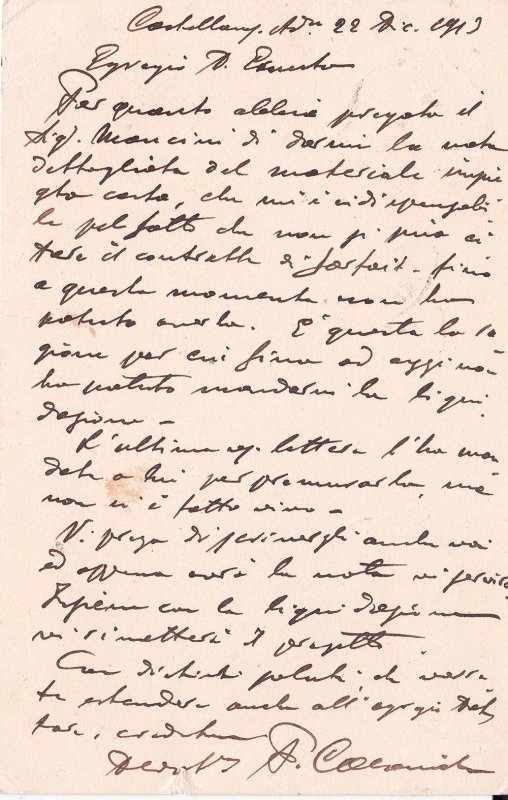 Castellamm. Adr. 22 Dic. 1913
Egregio D. Ernesto
Per quanto abbia pregato il
Sig. Mancini di darmi la nota
dettagliata del materiale impie
gato costà, che mi è indispensabi
le pel fatto che non si può ci
tare il contratto di forfait - fino
a questo momento non ho
potuto averla. E' questa la ra
gione per cui fino ad oggi non
ho potuto mandarvi la liqui
dazione -
L'ultima vs. lettera l'ho man
data a lui per premurarlo, ma
non si è fatto vivo -
Vi prego di scrivergli anche voi
ed appena avrò la nota vi servirò
Insieme con la liquidazione
vi si metterà il progetto
Con distinti saluti che vorre
te estendere anche all'egregio Dot
tore, credetemi
Devot/mo F.